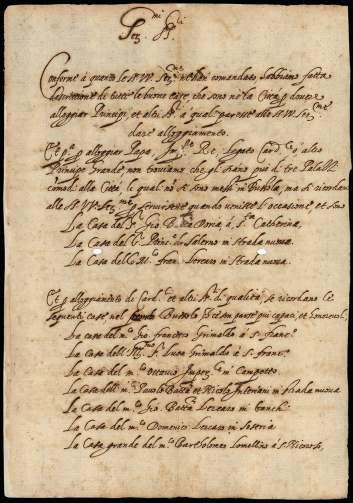 Ser.mi S.ri
Conforme à quanto le SS. VV. Ser.me ne han comandato, habbiamo fatta
descrittione di tutte le buone case, che sono ne la Città p douere
alloggiar Principi, et altri S.ri à quali paresse alle VV. Ser.me
dare alloggiamento.
Et p.a p alloggiar Papa, Imp.re Re, Legato Card.le ò altro
Principe grande non trouiamo che gli siano piu di tre Palazzi
comodi alla Città, le quali nō si sono messi in Bussola, ma si ricordano
alle SS. VV. Ser.me p seruirsene quando uenisse l'occasione, et sono
La Casa del S. Gio. Batta Doria, à S.ta Catherina,
La Casa del Prin.e di Salerno in strada nuoua.
La Casa del Fran. Lercaro in strada nuoua.
Et p alloggiamento di Card.li et altri S.ri di qualità, se ricordano le
seguenti case nel Bussolo p capaci, et honoreuoli.
La casa del m.co Gio. francesco Grimaldo à S. franc.o
La Casa dell Ill. S. Luca Grimaldo à S. franc.o
La Casa del m.co Ottauio in Campetto
La Casa delli m.ci Pauolo Batta et Nicolo Interiani in strada nuoua
La Casa del m.co Gio. Batta Lercaro in
La Casa del m.co Domenico Lercaro in
La Casa grande del m.co Bartholomeo Lomellino à